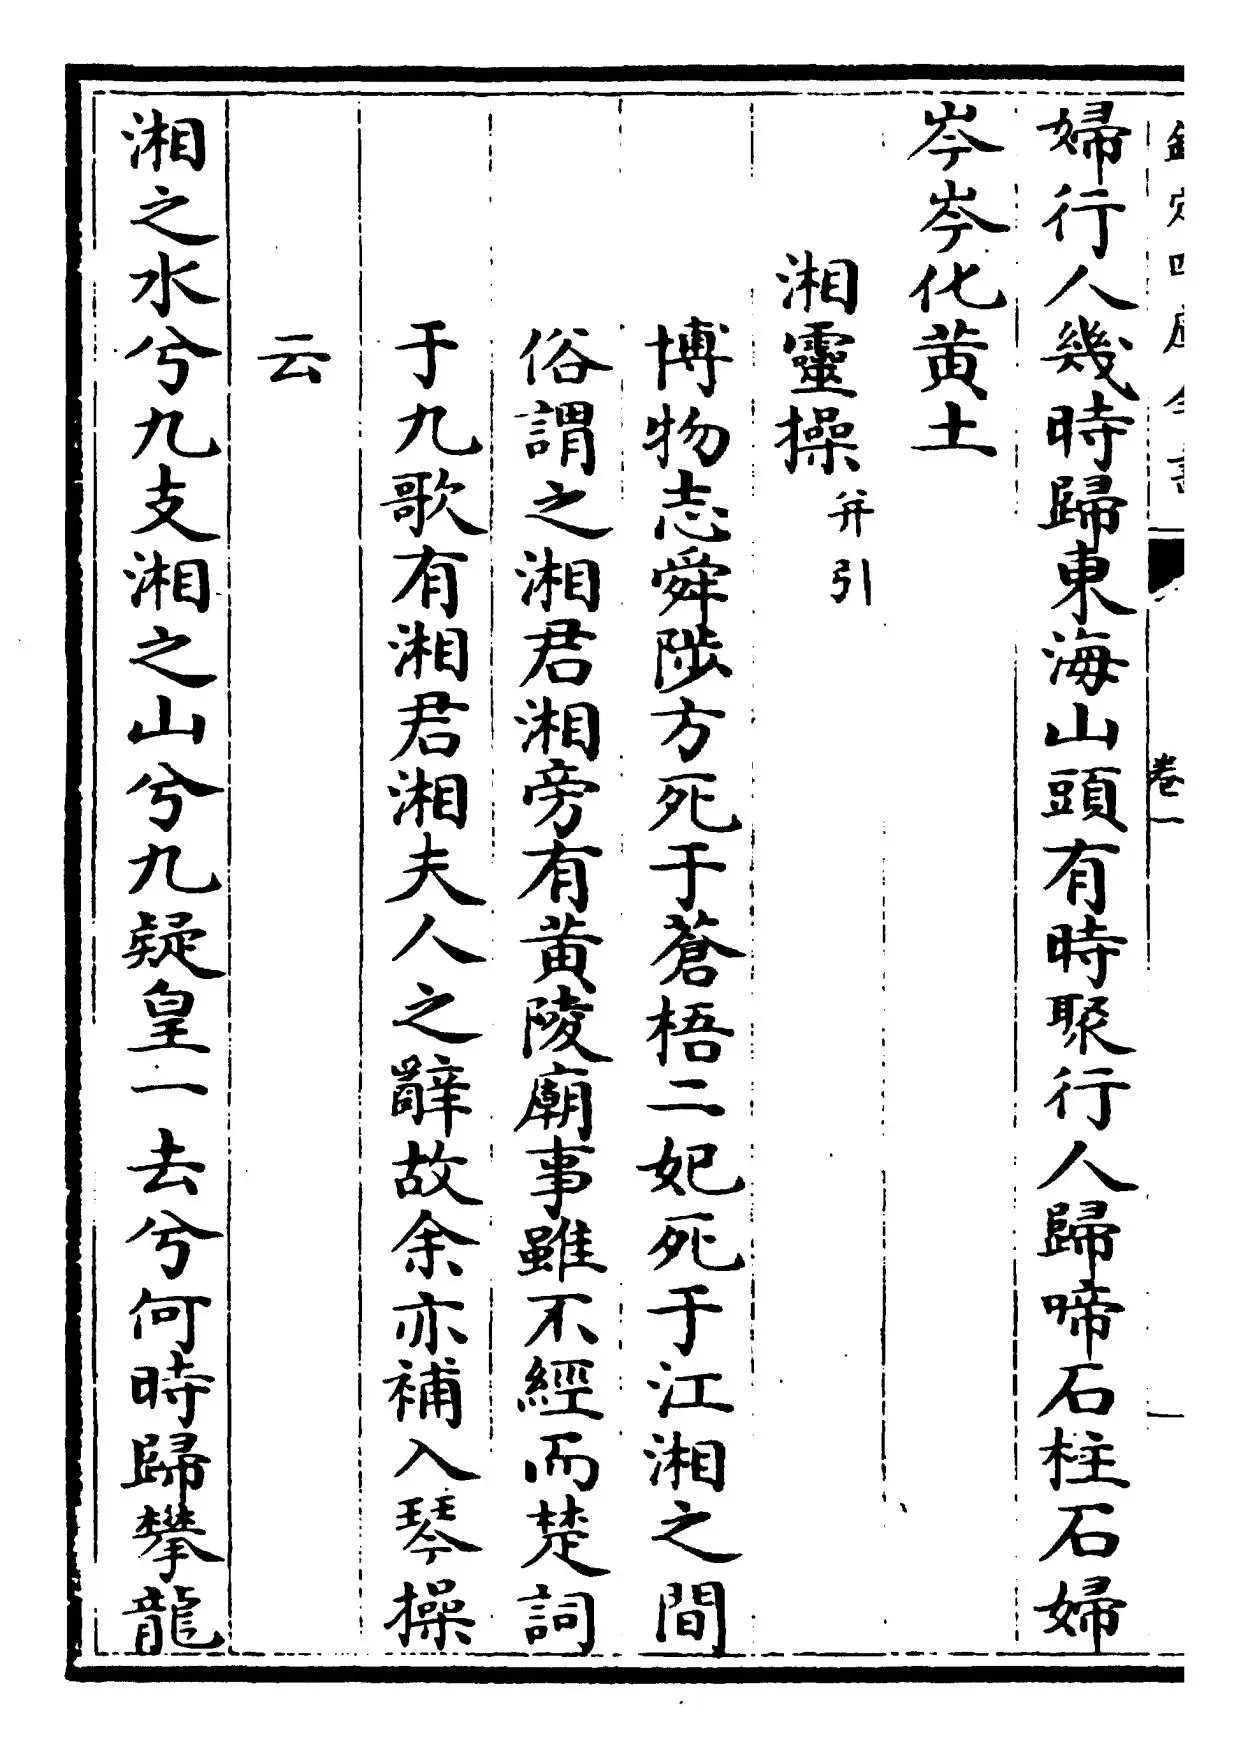 欽定四庫全書 卷一
婦行人幾時歸東海山頭有時聚行人歸啼石柱石婦
岑岑化黄土
湘靈操并引
博物志舜陟方死于蒼梧二妃死于江湘之間
俗謂之湘君湘旁有黄陵廟事雖不經而楚詞
于九歌有湘君湘夫人之辭故余亦補入琴操
云
湘之水兮九支湘之山兮九疑皇一去兮何時歸攀龍